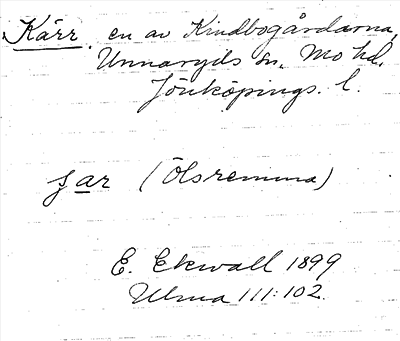 Kärr, en av Kindbogårdarna,
Unnaryds sn. Mo hd.
Jönköpings. l.
sar (Ölsremma)
E. Ekwall 1899
Ulma 111:102.